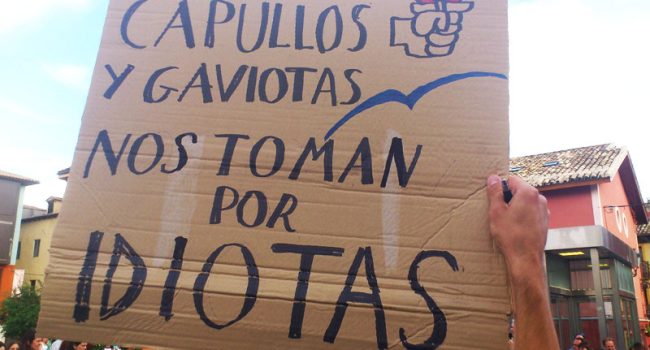 CAPULLOS
Y GAVIOTAS
NOS TOMAN
POR
IDIOTAS